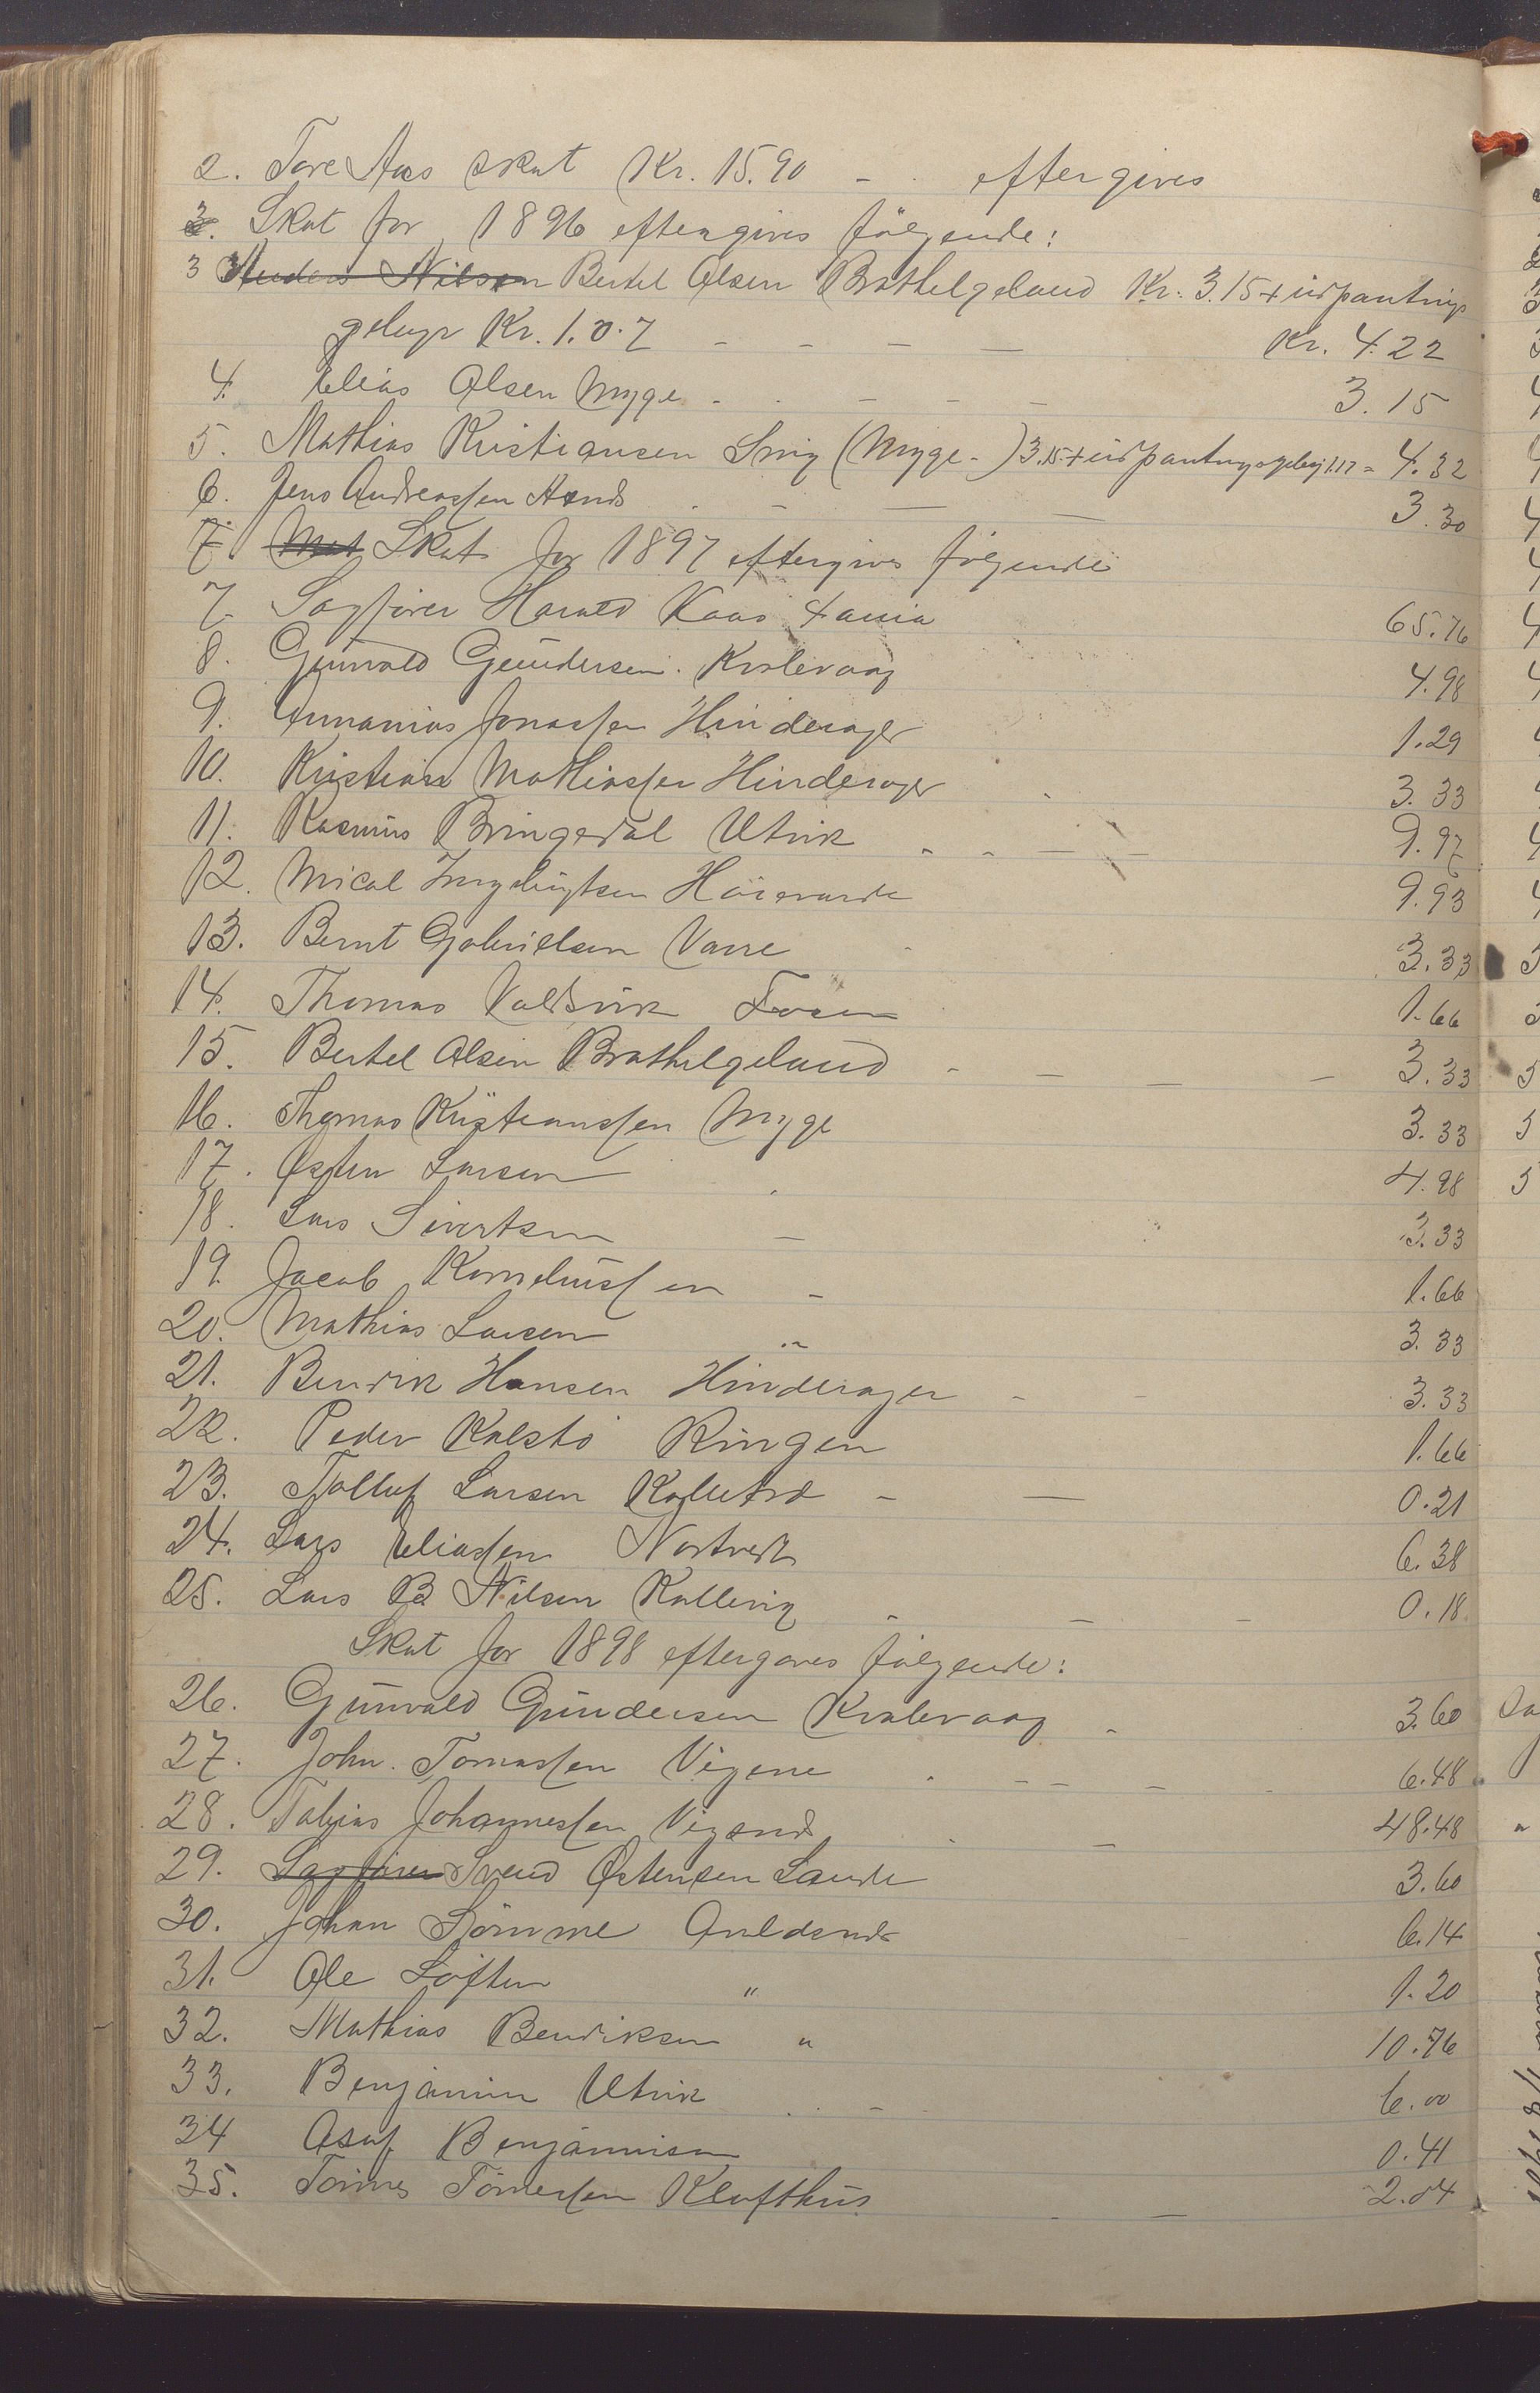 2. Tore Aas skat Kr. 15.90 - - eftergives
3. Skat for 1896 eftergives følgende:
3 Anders Nilsen Bertel Olsen Brathelgeland Kr. 3.15 + udpantnings
gebyr Kr. 1.07 - - - - Kr. 4.22
4. Elias Olsen Myge - - - - - 3.15
5. Mathias Kristiansen (Myge-) 3.15 + udpantningsgebyr 1.17 = 4.32
6. Jens Andreassen - - - - 3.30
7. Mat Skat for 1897 eftergives følgende
7. Sagfører Harald Kaas 65.76
8. Gunvald Gundersen. Kvalevaag 4.98
9. Annanias Jonassen Hinderager 1.29
10. Kristian Mathiassen Hinderager - 3.33
11. Rasmus Bringedal Utvik - - - - 9.97
12. Mical Høievarde 9.93
13. Bernt Gabrielsen Vaare - 3.33
14. Thomas Valdvik Fosen 1.66
15. Bertel Olsen Brathelgeland - - - - 3.33
16. Thomas Kristianssen Myge 3.33
17. Østen Larsen - 4.98
18. Lars Sivertsen - 3.33
19. Jacob Korneliussen - 1.66
20. Mathias Larsen " 3.33
21. Bendik Hansen Hinderager - - 3.33
22. Peder Kalstø Ringen 1.66
23. Tolluf Larsen - - 0.21
24. Lars Eliassen Nortvedt 6.38
25. Lars B. Nilsen Kallevig - - - 0.18
Skat for 1898 eftergaves følgende:
26. Gunvald Gundersen Kvalevaag - 3.60
27. John. Tomassen Vigene - - - - 6.48
28. Tobias Johannessen - - 48.48
29. Sagfører Svend Østensen Sande 3.60
30. Johan Sømme 6.14
31. Ole Loften " 1.20
32. Mathias Bendiksen " 10.76
33. Benjamin Utvik - - 6.00
34 Asof Benjaminsen 0.41
35. Tønnes Tønnessen Klofthus - - 2.04